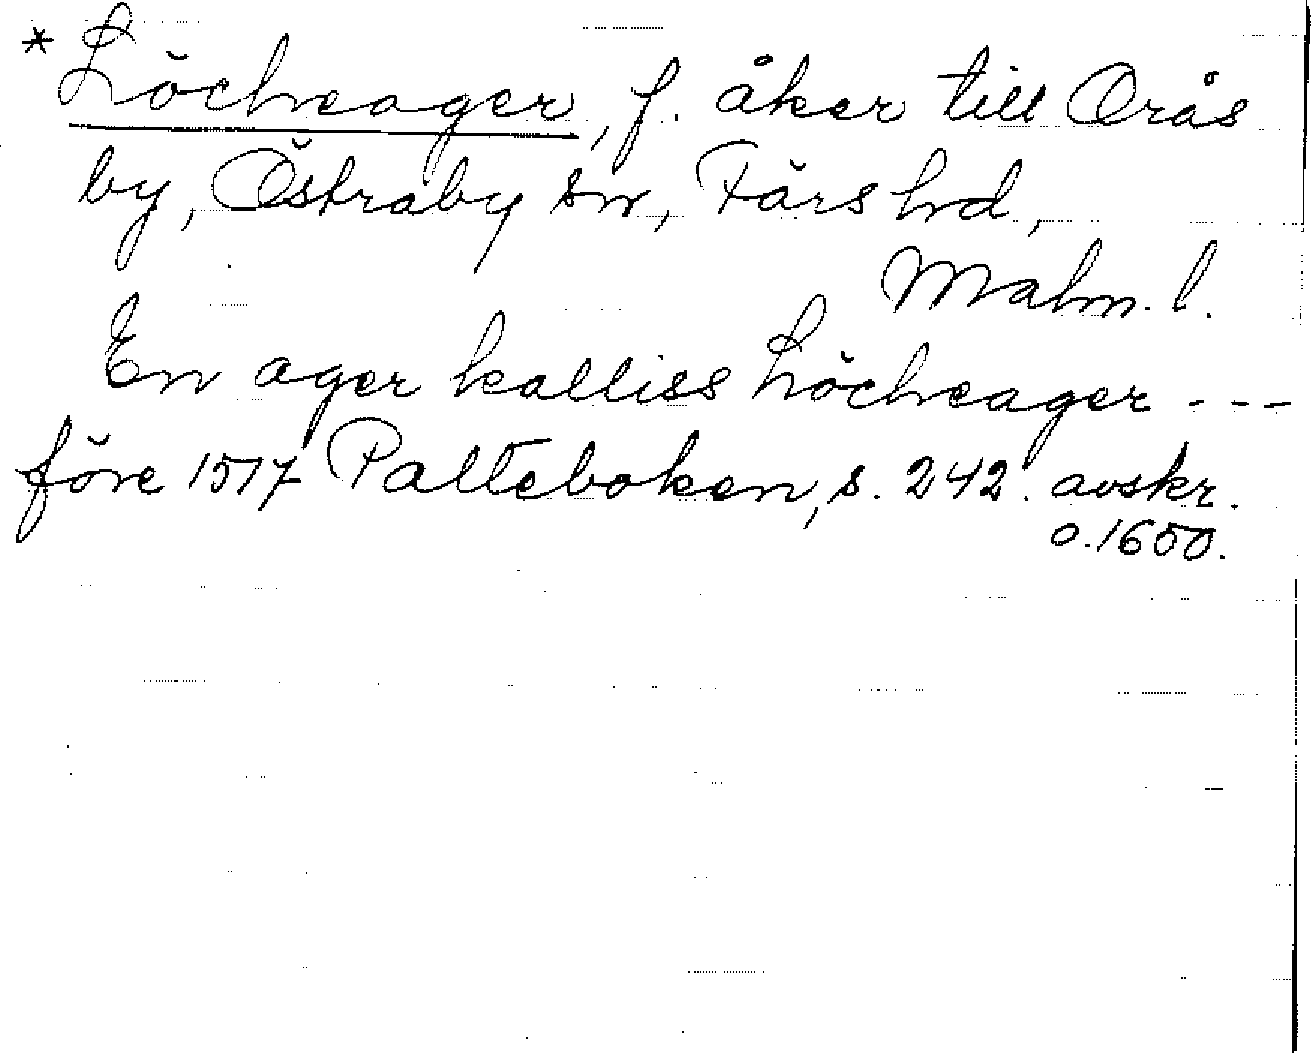 * Löcheager, f. åker till Orås
by, Östraby sn, Färs hd,
Malm. l.
En ager kalliss Löcheager ---
före 1517 Palteboken, s. 242. avskr.
o. 1600.